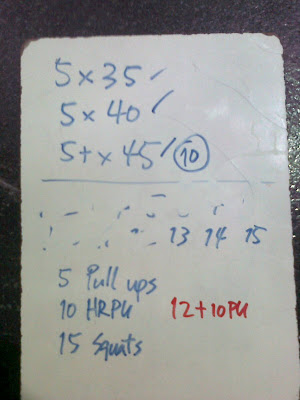 5 x 35 ✓
5 x 40 ✓
5+ x 45 ✓ 10
13 14 15
5 Pull ups
10 HRPU 12+10PU
15 Squats